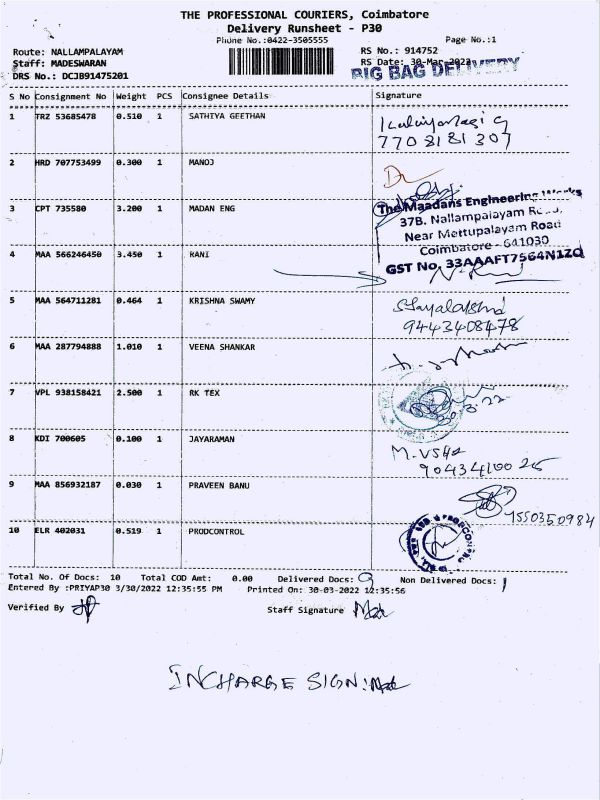 THE PROFESSIONAL COURIERS, Coimbatore
Delivery Runsheet - P30
Phone No.:0422-3505555 Page No.:1
Route: NALLAMPALAYAM RS No.: 914752
Staff: MADESWARAN RS Date: 30-Mar-2022
DRS No.: DCJB91475201 BIG BAG DELIVERY
S No Consignment No Weight PCS Consignee Details Signature
1 TRZ 53685478 0.510 1 SATHIYA GEETHAN
7708181307
2 HRD 707753499 0.300 1 MANOJ
3 CPT 735580 3.200 1 MADAN ENG
The Maadans Engineering Works
37B. Nallampalayam
Near Mettupalayam Road
Coimbatore - 641030
GST No. 33AAAFT7564N1ZQ
4 MAA 566246450 3.450 1 RANI
5 MAA 564711281 0.464 1 KRISHNA SWAMY
9443408478
6 MAA 287794888 1.010 1 VEENA SHANKAR
7 VPL 938158421 2.500 1 RK TEX
8 KDI 700605 0.100 1 JAYARAMAN
M.VSHA
9 MAA 856932187 0.030 1 PRAVEEN BANU
10 ELR 402031 0.519 1 PRODCONTROL
Total No. Of Docs: 10 Total COD Amt: 0.00 Delivered Docs: 9 Non Delivered Docs: 1
Entered By :PRIYAP30 3/30/2022 12:35:55 PM Printed On: 30-03-2022 12:35:56
Verified By Staff Signature
INCHARGE SIGN: